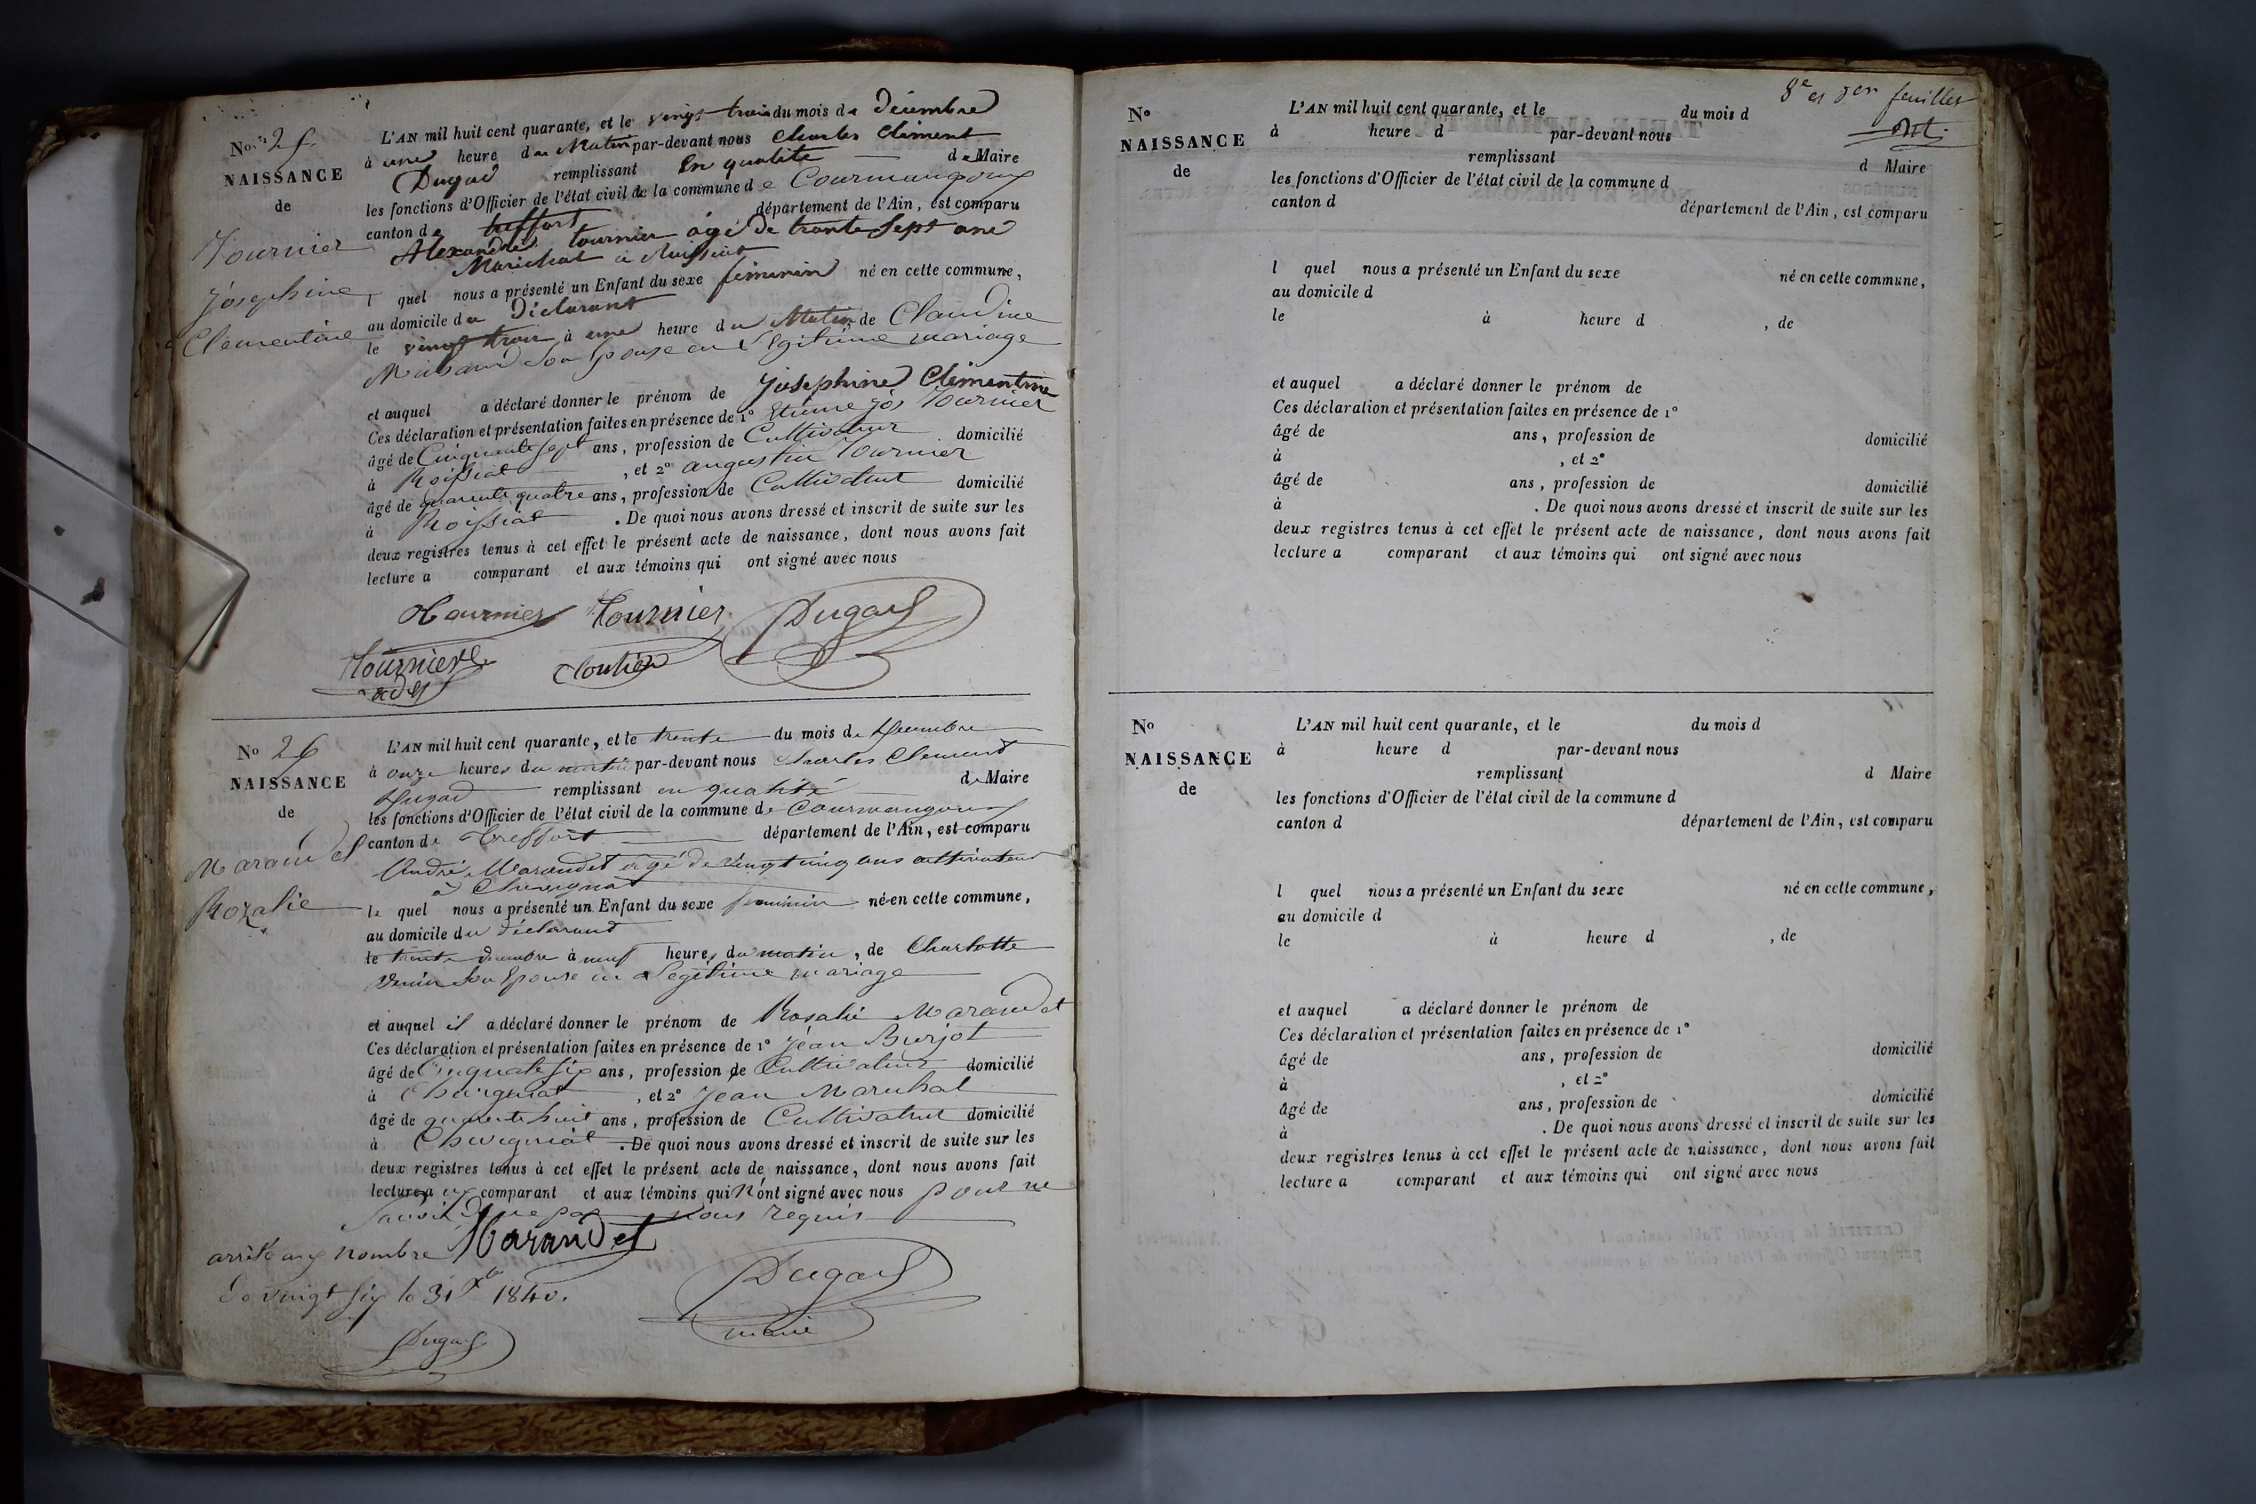 No. 25.
NAISSANCE
de
Tournier
Josephine
Clementine
L'AN mil huit cent quarante, et le vingt trois du mois de Décembre
à une heure du Matin par-devant nous Charles Clément
Dugad remplissant En qualité de Maire
les fonctions d'Officier de l'état civil de la commune de Courmangoux
canton de treffort département de l'Ain, est comparu
Alexandre tournier âgé de trente Sept ans
Marichal à Roissiat
l quel nous a présenté un Enfant du sexe féminin né en cette commune,
au domicile du Déclarant
le vingt trois à une heure du Matin de Claudine
son Epouse en Légitime mariage
et auquel a déclaré donner le prénom de Joséphine Clémentine
Ces déclaration et présentation faites en présence de 1° Etienne Jos Tournier
âgé de Cinquante sept ans, profession de Cultivateur domicilié
à Roissiat, et 2° augustin Tournier
âgé de quarente quatre ans, profession de Cultivateur domicilié
à Roissiat. De quoi nous avons dressé et inscrit de suite sur les
deux registres tenus à cet effet le présent acte de naissance, dont nous avons fait
lecture a comparant et aux témoins qui ont signé avec nous
Tournier Tournier Dugad
Tournier
No 26
NAISSANCE
de
Marandet
Rozalie
L'AN mil huit cent quarante, et le trente du mois de Décembre
à onze heures du matin par-devant nous Charles Clement
Dugad remplissant en qualité de Maire
les fonctions d'Officier de l'état civil de la commune de Courmangoux
canton de Treffort département de l'Ain, est comparu
André Marandet âgé de vingt cinq ans cultivateur
à Chevignat
le quel nous a présenté un Enfant du sexe feminin né en cette commune,
au domicile du déclarant
le trente décembre à neuf heures du matin, de Charlotte
son Epouse en Légitime mariage
et auquel il a déclaré donner le prénom de Rosalie Marandet
Ces déclaration et présentation faites en présence de 1° Jean Burjot
âgé de Cinquante six ans, profession de Cultivateur domicilié
à Chevignat, et 2° Jean Maréchal
âgé de quarente huit ans, profession de Cultivateur domicilié
à Chevignat. De quoi nous avons dressé et inscrit de suite sur les
deux registres tenus à cet effet le présent acte de naissance, dont nous avons fait
lecture a comparant et aux témoins qui n'ont signé avec nous pour ne
savoir de ce requis
Marandet
arrêté aux nombre
de vingt six le 31 Xbre 1840.
Dugad
maire
Dugad
8e et 9er feuillet
No
NAISSANCE
de
L'AN mil huit cent quarante, et le du mois d
à heure d par-devant nous
remplissant d Maire
les fonctions d'Officier de l'état civil de la commune d
canton d département de l'Ain, est comparu
l quel nous a présenté un Enfant du sexe né en cette commune,
au domicile d
le à heure d , de
et auquel a déclaré donner le prénom de
Ces déclaration et présentation faites en présence de 1°
âgé de ans, profession de domicilié
à , et 2°
âgé de ans, profession de domicilié
à . De quoi nous avons dressé et inscrit de suite sur les
deux registres tenus à cet effet le présent acte de naissance, dont nous avons fait
lecture a comparant et aux témoins qui ont signé avec nous
No
NAISSANCE
de
L'AN mil huit cent quarante, et le du mois d
à heure d par-devant nous
remplissant d Maire
les fonctions d'Officier de l'état civil de la commune d
canton d département de l'Ain, est comparu
l quel nous a présenté un Enfant du sexe né en cette commune,
au domicile d
le à heure d , de
et auquel a déclaré donner le prénom de
Ces déclaration et présentation faites en présence de 1°
âgé de ans, profession de domicilié
à , et 2°
âgé de ans, profession de domicilié
à . De quoi nous avons dressé et inscrit de suite sur les
deux registres tenus à cet effet le présent acte de naissance, dont nous avons fait
lecture a comparant et aux témoins qui ont signé avec nous